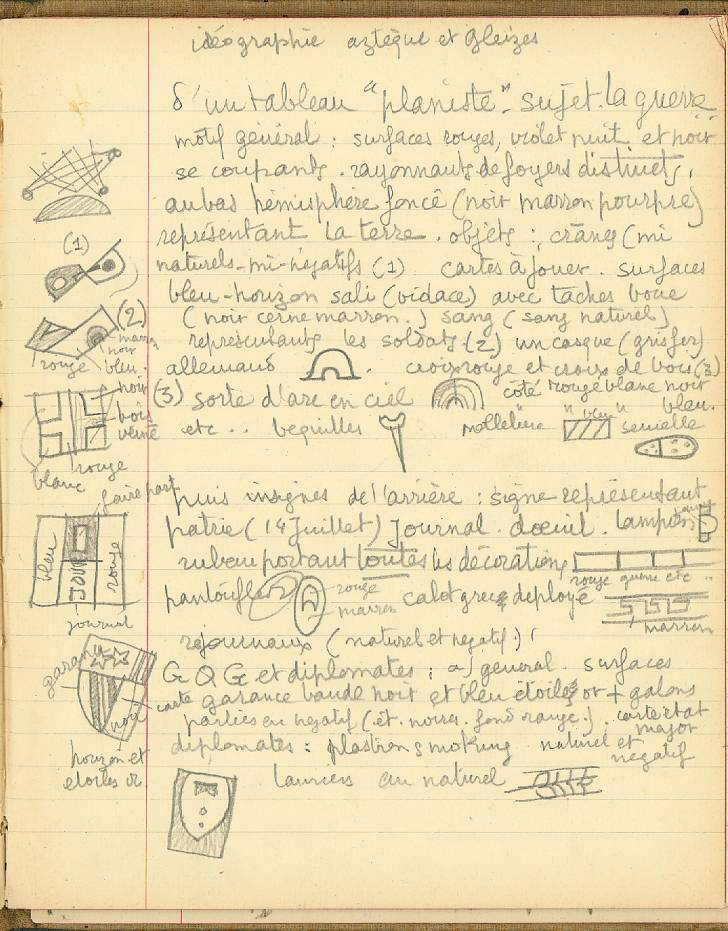 idéographie aztèque et Gleizes
d'un tableau "planiste". sujet. la guerre
motif général : surfaces rouges, violet nuit et noir
se coupants. rayonnants de foyers distincts,
au bas hémisphère foncé (noir marron pourpre)
représentant la terre. objets : crânes (mi
naturels-mi-négatifs (1) cartes à jouer. surfaces
bleu-horizon sali (vidace) avec taches boue
(noir cerne marron.) sang (sang naturel)
représentants les soldats (2) un casque (gris fer)
allemand . croix rouge et croix de bois (3)
(3) sorte d'arc en ciel côté rouge blanc noir
bleu.
etc .. bequilles molletière "bleu" semelle
puis insignes de l'arrière : signe représentant
patrie (14 Juillet) Journal. deuil. lampion
ruban portant toutes les décorations
rouge guerre etc
pantoufles rouge
marron calot grec deployé
marron
journaux (naturel et négatif.)
GQG et diplomates : a) general. surfaces
garance bande noir et bleu étoiles or + galons
parties en négatif (ét. noires. fond rouge.). carte état
major
diplomates : plastron smoking naturel et
négatif
lauriers au naturel
(1)
(2)
marron
noir
bleu.
rouge
noir
bois
veiné
rouge
blanc
faire part
bleu
JOUR
rouge
journal
garance
carte
noir
horizon et
etoiles or